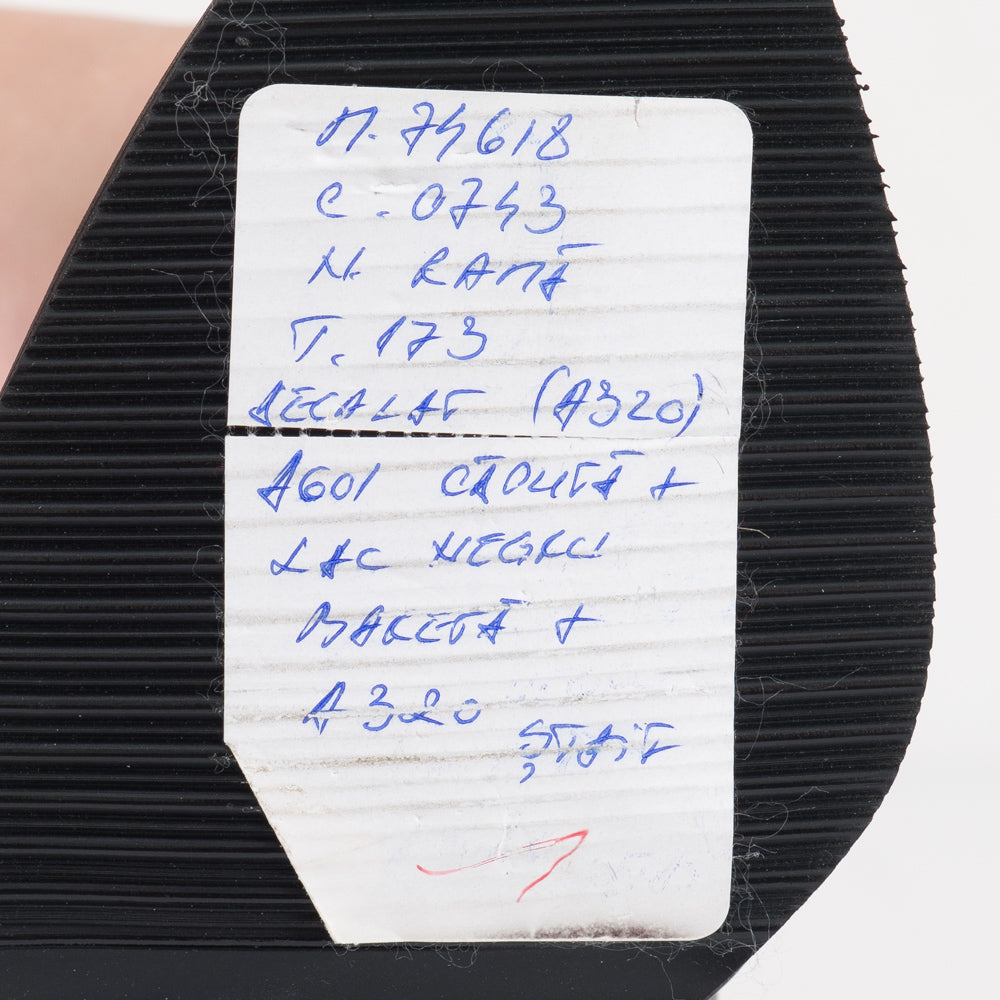 M. 74618
C. 0743
N. RAMĂ
T. 173
DECALAT (A320)
A601 CĂPUTĂ +
LAC NEGRU
BARETĂ +
A320
ȘTAIF